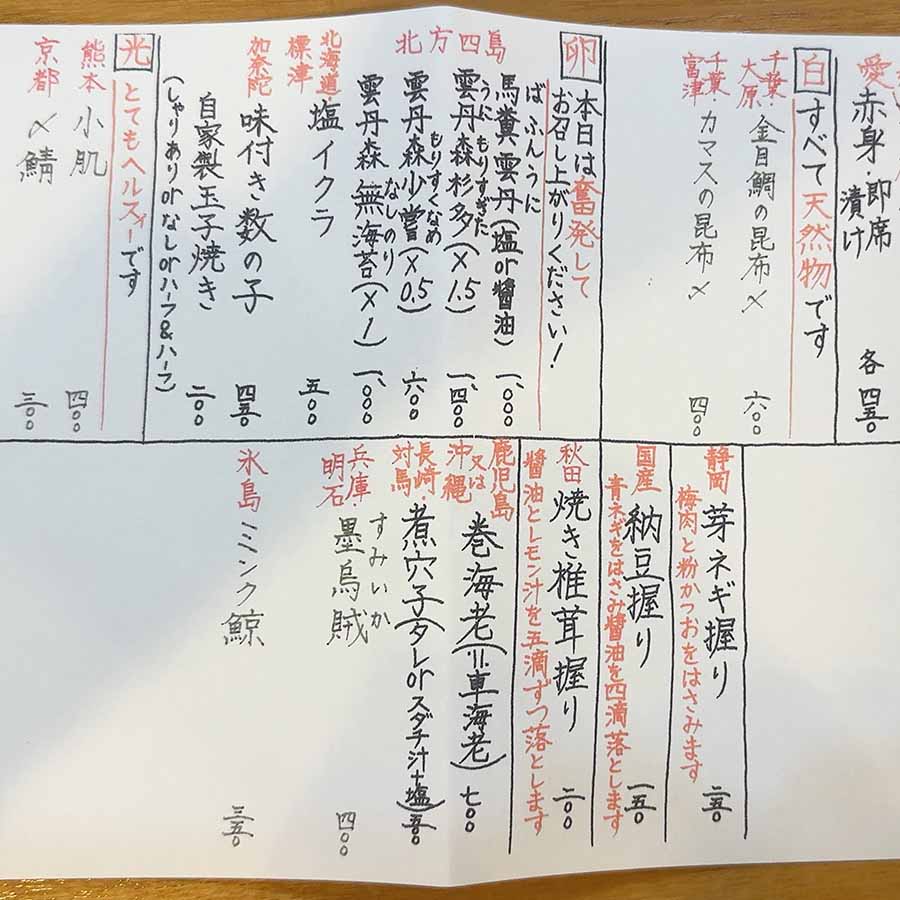 愛
赤身・即席漬け
各 四五〇
白 すべて天然物です
千葉・大原 金目鯛の昆布〆 六〇〇
千葉・富津 カマスの昆布〆 四〇〇
卵 本日は奮発して
お召し上がりください！
北方四島
ばふんうに
馬糞雲丹(塩or醤油) 一、〇〇〇
うに もりすぎた
雲丹森杉多(×1.5) 一、四〇〇
もりすくなめ
雲丹森少嘗(×0.5) 六〇〇
なしのり
雲丹森無海苔(×1) 一、〇〇〇
北海道・標津 塩イクラ 五〇〇
加奈陀 味付き数の子 四五〇
自家製玉子焼き 二〇〇
(しゃりありorなしorハーフ&ハーフ)
光 とてもヘルスィーです
熊本 小肌 四〇〇
京都 〆鯖 三〇〇
静岡 芽ネギ握り 二五〇
梅肉と粉かつおをはさみます
国産 納豆握り 一五〇
青ネギをはさみ醤油を四滴落とします
秋田 焼き椎茸握り 二〇〇
醤油とレモン汁を五滴ずつ落とします
鹿児島又は沖縄 巻海老(=車海老) 七〇〇
長崎・対馬 煮穴子(タレorスダチ汁+塩) 五〇〇
すみいか
兵庫・明石 墨烏賊 四〇〇
氷島 ミンク鯨 三五〇